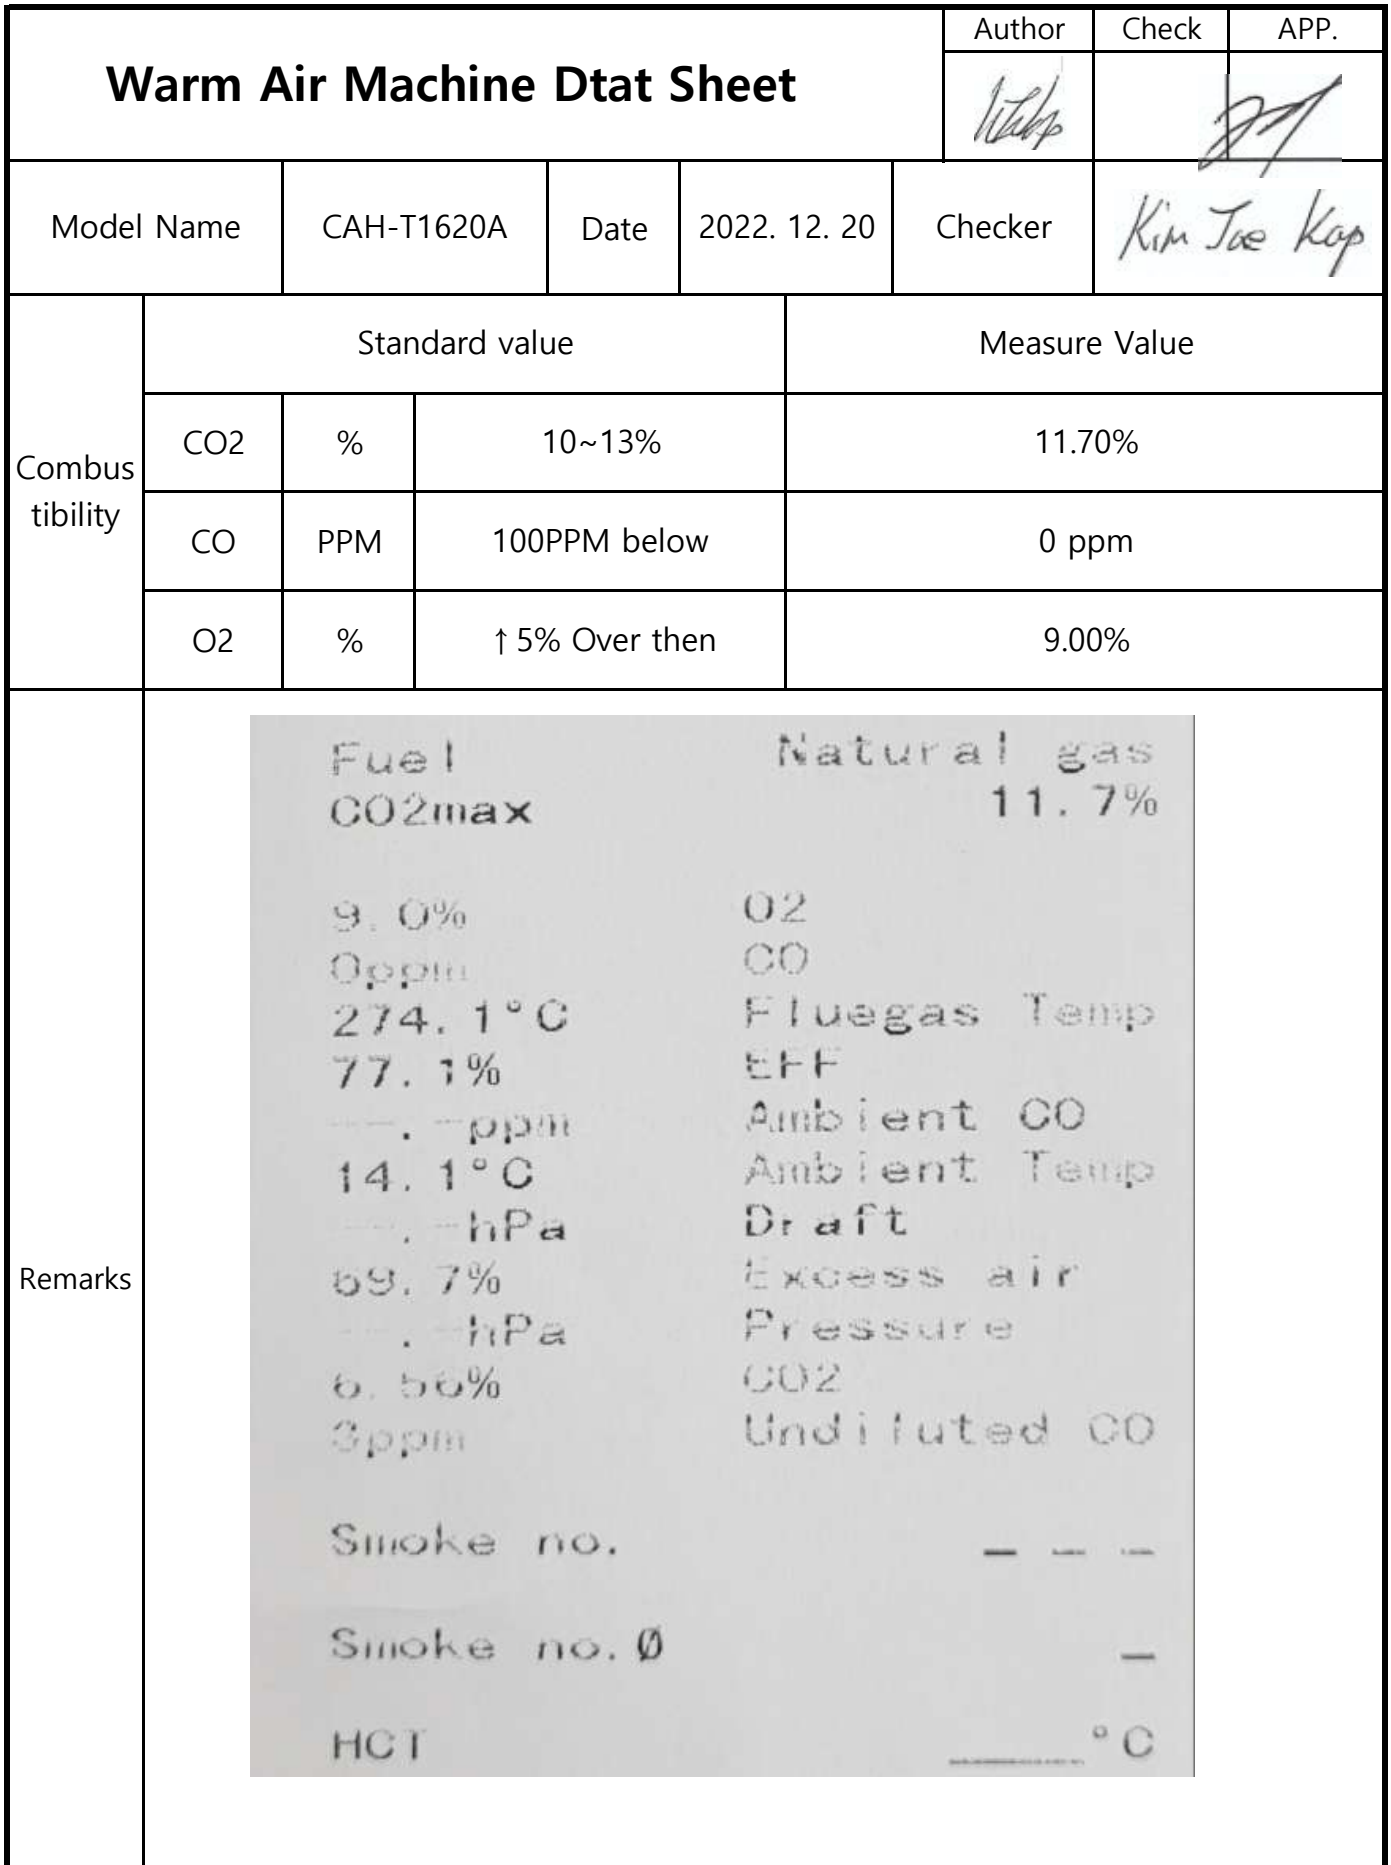 Warm Air Machine Dtat Sheet
Author Check APP.
Model Name CAH-T1620A Date 2022. 12. 20 Checker Kim Jae Kap
Standard value Measure Value
Combus
tibility
CO2 % 10~13% 11.70%
CO PPM 100PPM below 0 ppm
O2 % ↑5% Over then 9.00%
Remarks
Fuel Natural gas
CO2max 11.7%
9.0% O2
0ppm CO
274.1°C Fluegas Temp
77.1% EFF
--.-ppm Ambient CO
14.1°C Ambient Temp
--.-hPa Draft
69.7% Excess air
--.-hPa Pressure
6.56% CO2
3ppm Undiluted CO
Smoke no. _ _ _
Smoke no.Ø _
HCT ____°C